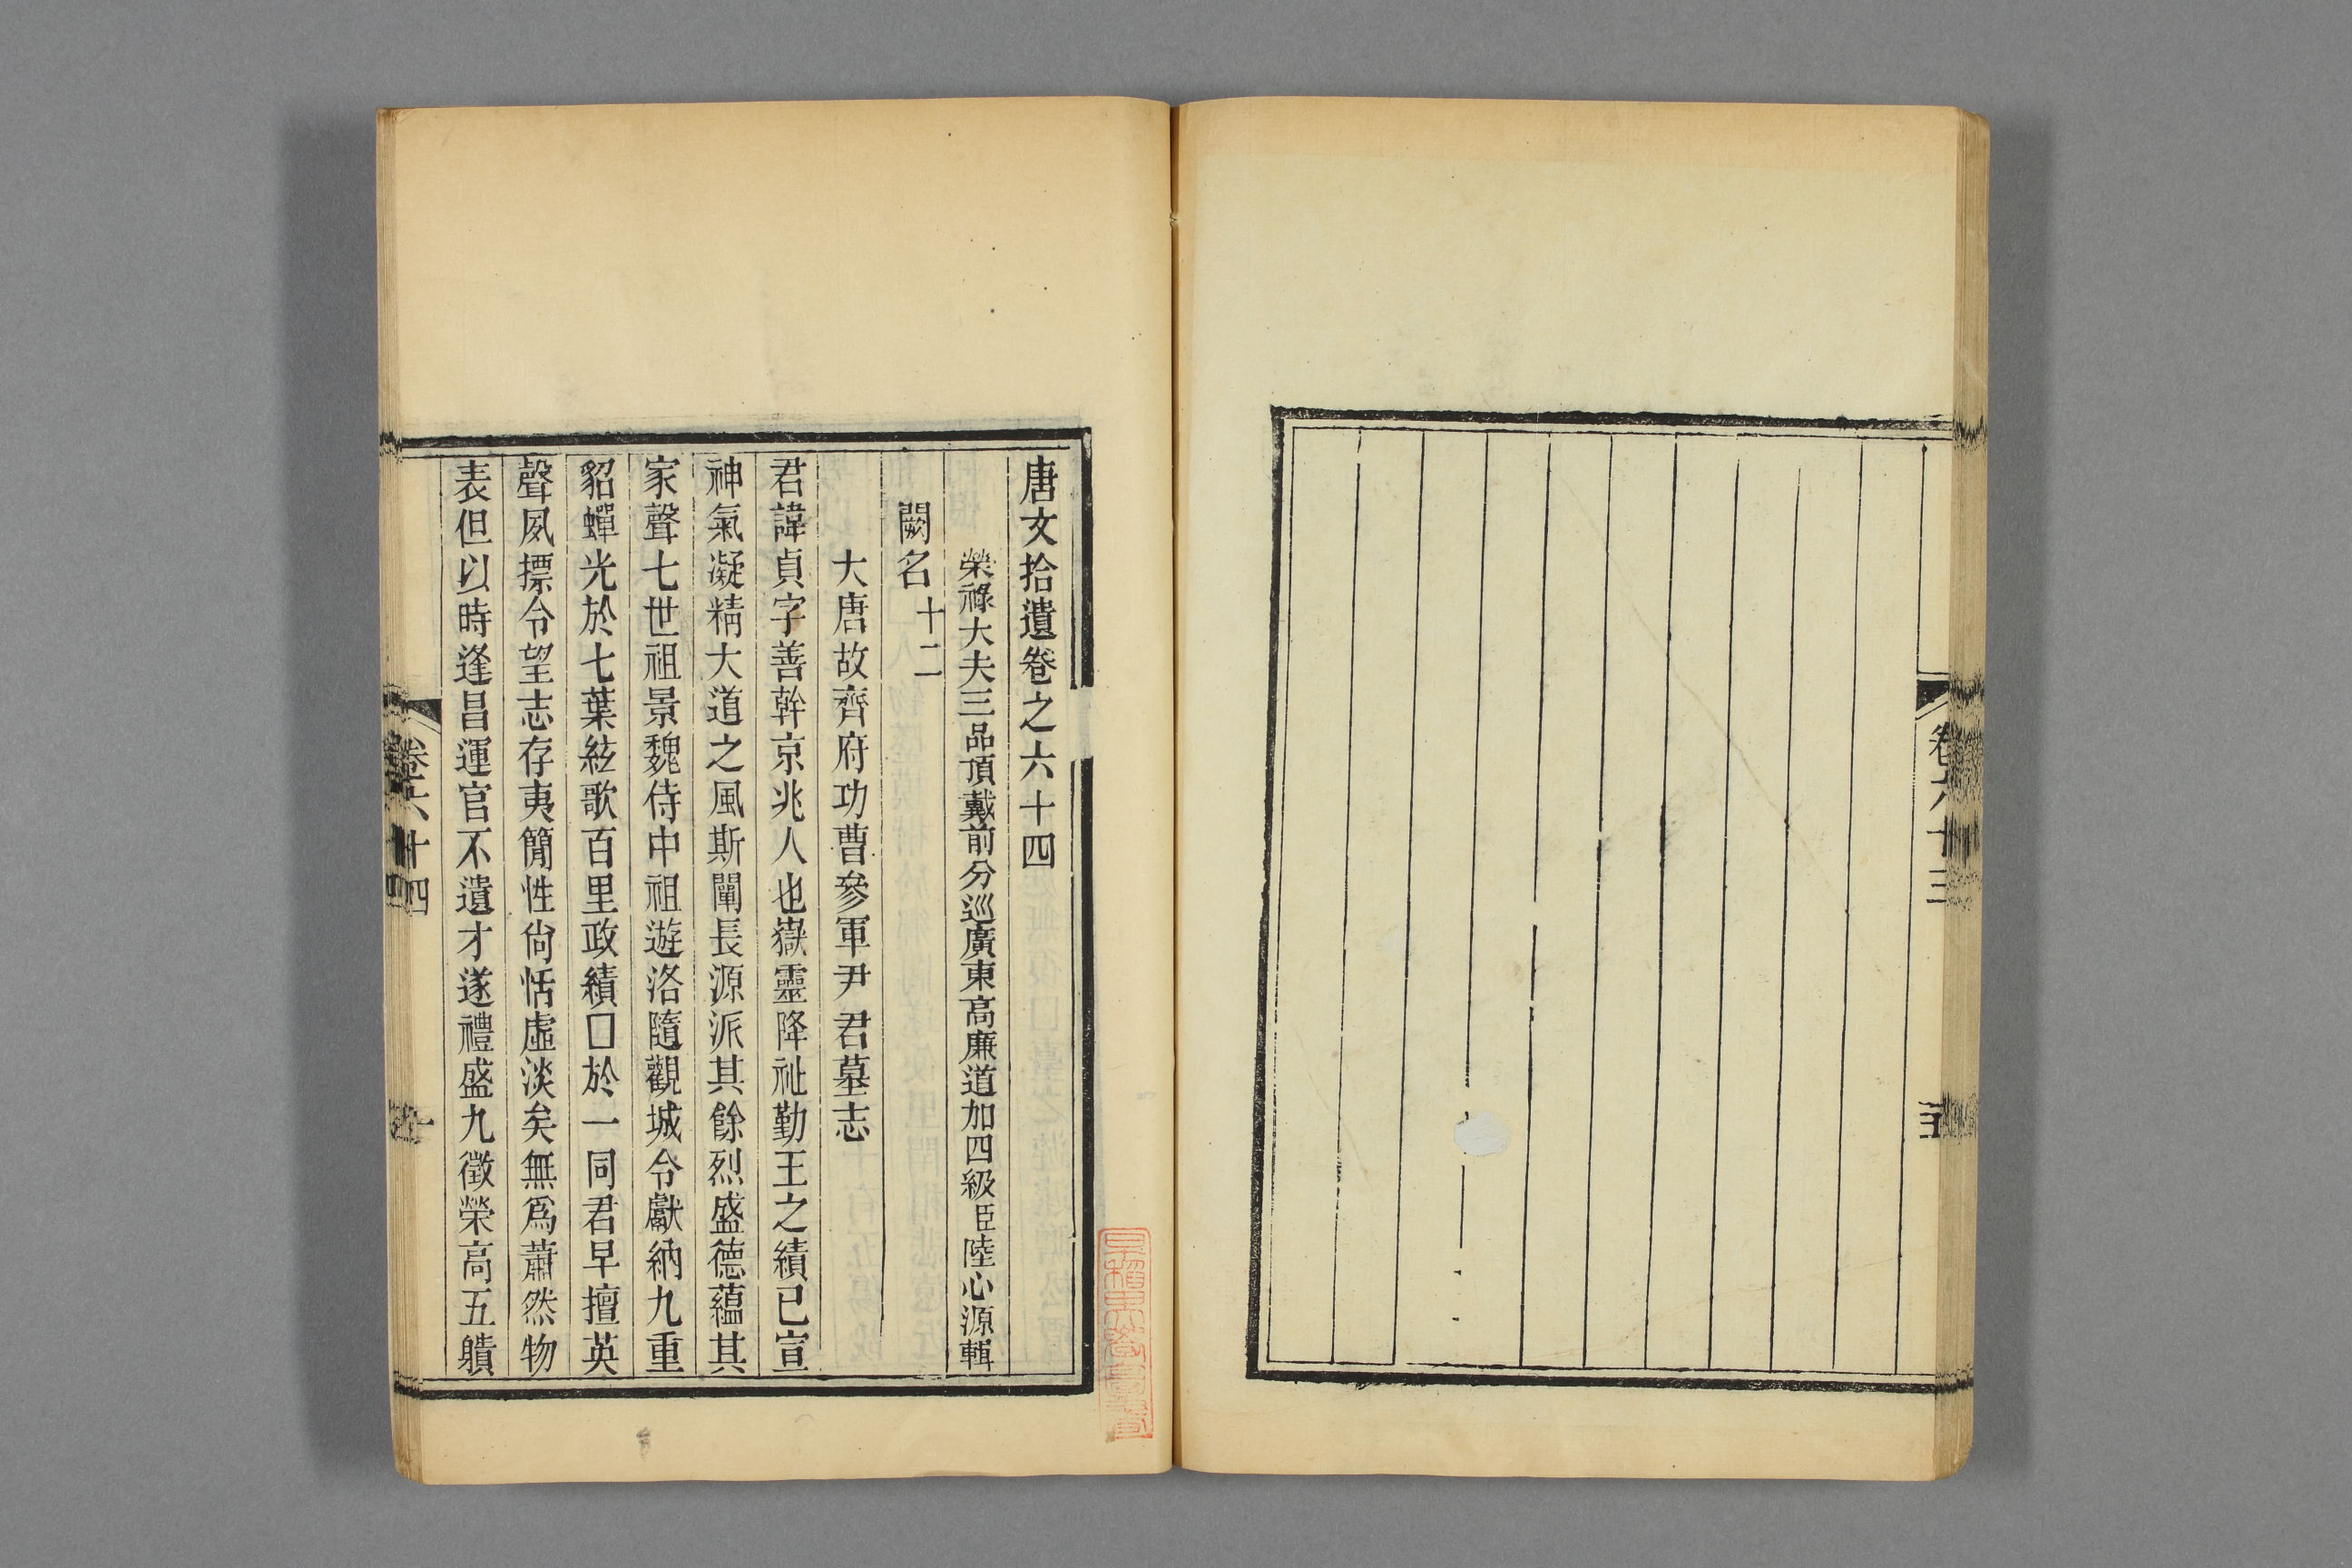 唐文拾遺卷之六十四
榮祿大夫三品頂戴前分巡廣東高廉道加四級臣陸心源輯
闕名十二
大唐故齊府功曹參軍尹君墓志
君諱貞字善幹京兆人也嶽靈降祉勤王之績已宣
神氣凝精大道之風斯闡長源派其餘烈盛德蘊其
家聲七世祖景魏侍中祖遊洛隨觀城令獻納九重
貂蟬光於七葉絃歌百里政績□於一同君早擅英
聲夙摽令望志存夷簡性尙恬虛淡矣無爲蕭然物
表但以時逢昌運官不遺才遂禮盛九徵榮高五鞼
卷六十四
一
卷六十三